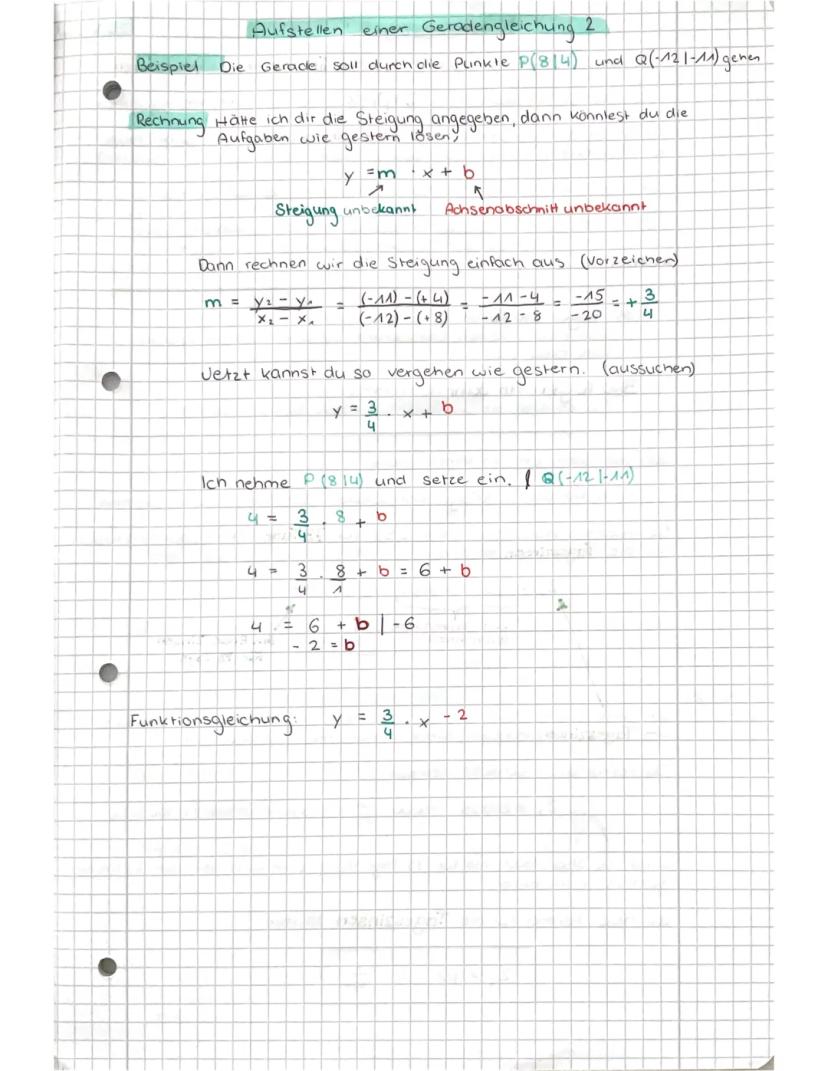 Aufstellen einer Geradengleichung 2
Beispiel Die Gerade soll durch die Punkte P(8|4) und Q(-12|-11) gehen
Rechnung Hätte ich dir die Steigung angegeben, dann könntest du die
Aufgaben wie gestern lösen,
y = m · x + b
Steigung unbekannt Achsenabschnitt unbekannt
Dann rechnen wir die Steigung einfach aus (Vorzeichen)
m = (y₂ - y₁)/(x₂ - x₁) = ((-11) - (+4))/((-12) - (+8)) = (-11 - 4)/(-12 - 8) = -15/-20 = + 3/4
Jetzt kannst du so vergehen wie gestern. (aussuchen)
y = 3/4 · x + b
Ich nehme P(8|4) und setze ein. | Q(-12|-11)
4 = 3/4 · 8 + b
4 = 3/4 · 8/1 + b = 6 + b
4 = 6 + b | -6
- 2 = b
Funktionsgleichung: y = 3/4 · x - 2